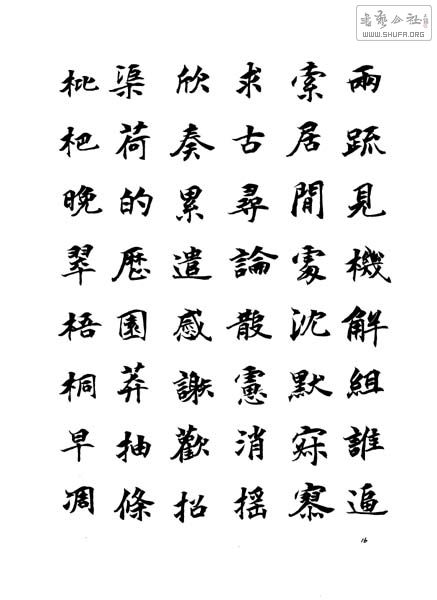 兩疏見機解組誰逼
索居閒處沈默寂寥
求古尋論散慮消搖
欣奏累遣慼謝歡招
渠荷的歷園莽抽條
枇杷晚翠梧桐早凋
16
書藝公社
WWW.SHUFA.ORG